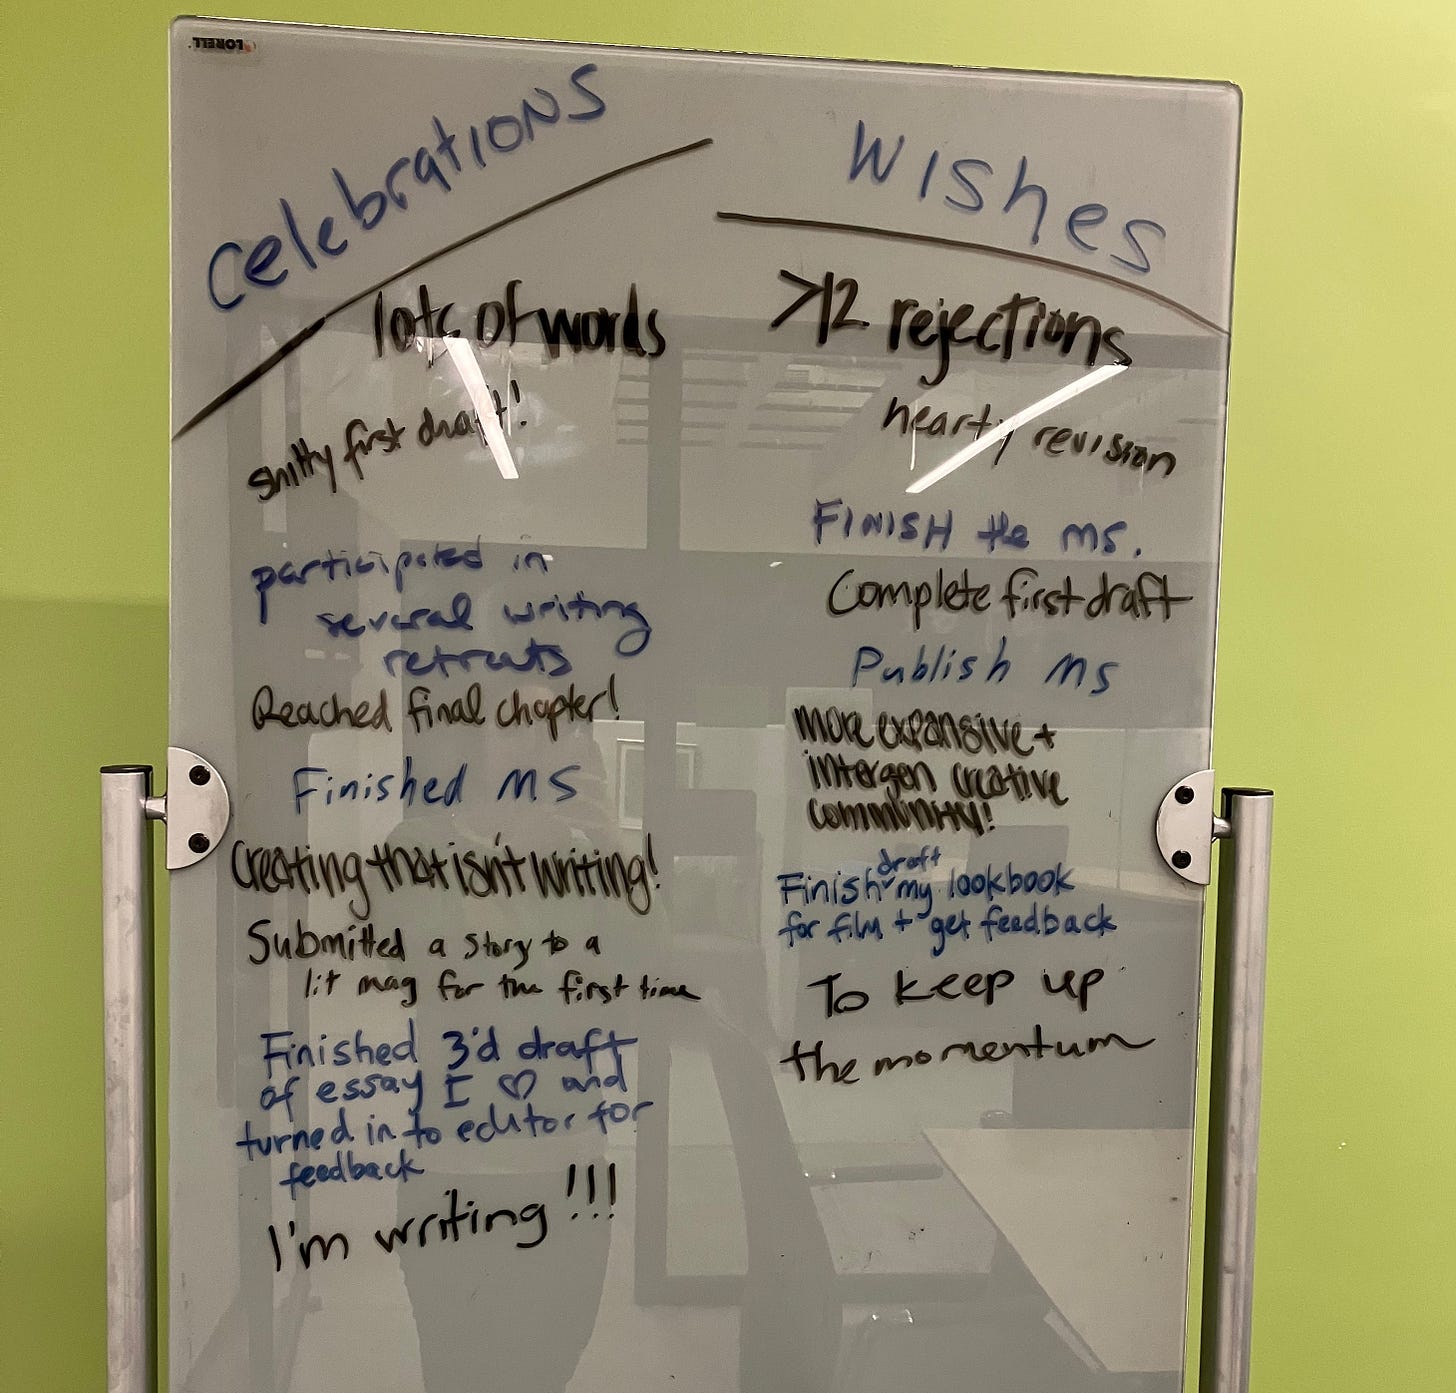 LORELL
Celebrations
lots of words
shitty first draft!
participated in
several writing
retreats
Reached final chapter!
Finished MS
Creating that isn't writing!
Submitted a story to a
lit mag for the first time
Finished 3'd draft
of essay I ♡ and
turned in to editor for
feedback
I'm writing!!!
Wishes
>12 rejections
hearty revision
FINISH the MS.
Complete first draft
Publish MS
more expansive +
intergen creative
community!
draft
Finish ˅ my lookbook
for film + get feedback
To keep up
the momentum